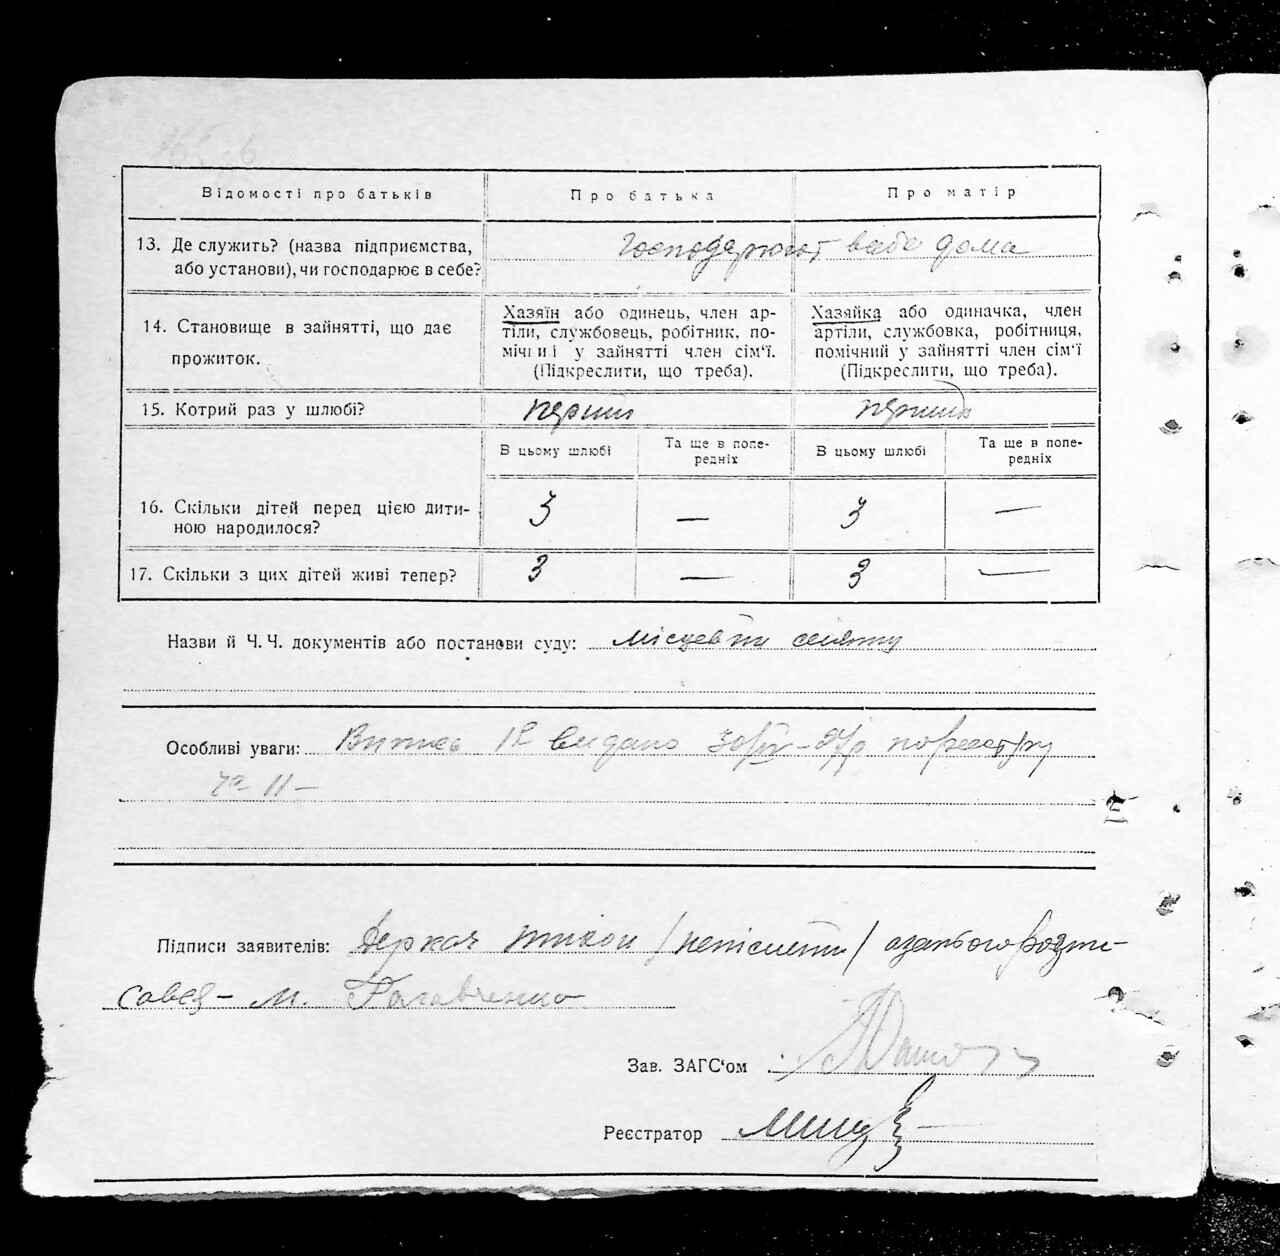 Відомості про батьків
Про батька
Про матір
13. Де служить? (назва підприємства,
або установи), чи господарює в себе?
Господарюют в себе дома
14. Становище в зайнятті, що дає
прожиток.
Хазяїн або одинець, член ар-
тіли, службовець, робітник, по-
мічниі у зайнятті член сім'ї.
(Підкреслити, що треба).
Хазяйка або одиначка, член
артіли, службовка, робітниця,
помічний у зайнятті член сім'ї
(Підкреслити, що треба).
15. Котрий раз у шлюбі?
перший
перший
В цьому шлюбі
Та ще в попе-
редніх
В цьому шлюбі
Та ще в попе-
редніх
16. Скільки дітей перед цією дити-
ною народилося?
3 — 3 —
17. Скільки з цих дітей живі тепер?
3 — 3 —
Назви й Ч. Ч. документів або постанови суду:
Особливі уваги: Витяг видано по реєстру
11 –
Підписи заявителів: Деркач / неписьмен /
м.
Зав. ЗАГС'ом
Реєстратор